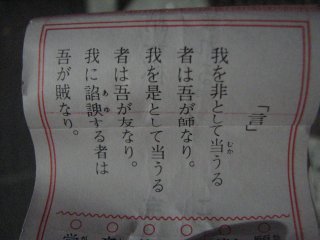 「言」
我を非として当うる
者は吾が師なり。
我を是として当うる
者は吾が友なり。
我に諂諛する者は
吾が賊なり。